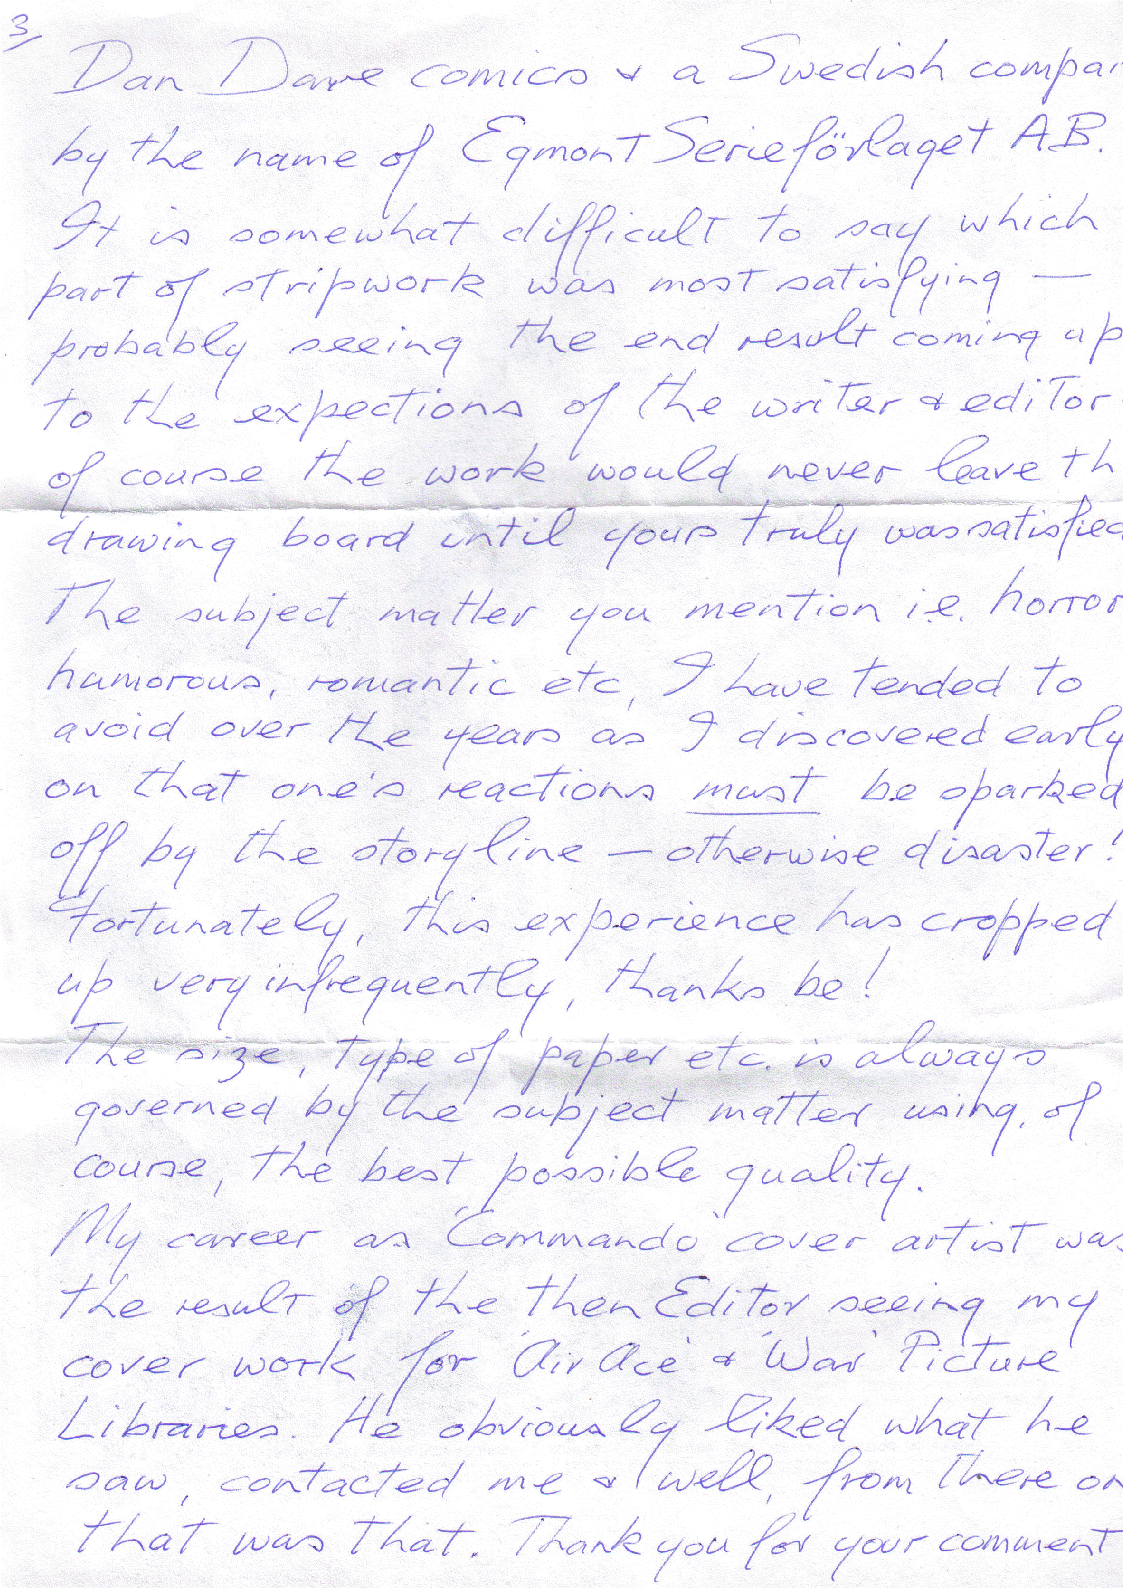 3/
Dan Dare comics & a Swedish compan
by the name of Egmont Serieförlaget AB.
It is somewhat difficult to say which
part of stripwork was most satisfying —
probably seeing the end result coming up
to the expections of the writer & editor
of course the work would never leave th
drawing board until yours truly was satisfied
The subject matter you mention i.e. horror
humorous, romantic etc, I have tended to
avoid over the years as I discovered early
on that one's reactions must be sparked
off by the storyline — otherwise disaster!
Fortunately, this experience has cropped
up very infrequently, thanks be!
The size, type of paper etc. is always
governed by the subject matter using, of
course, the best possible quality.
My career as 'Commando' cover artist was
the result of the then Editor seeing my
cover work for 'Air Ace' & 'War' Picture
Libraries. He obviously liked what he
saw, contacted me & well, from there on
that was that. Thank you for your comment